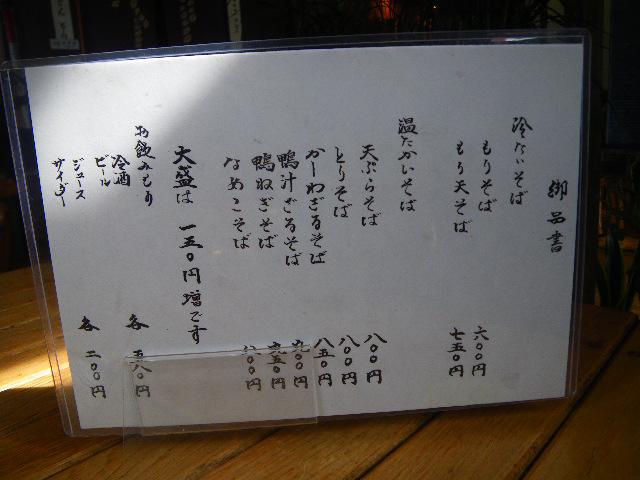 御品書
冷たいそば
もりそば 六〇〇円
もり天そば 七五〇円
温たかいそば
天ぷらそば 八〇〇円
とりそば 八〇〇円
かしわざるそば 八五〇円
鴨汁ざるそば 九〇〇円
鴨ねぎそば 九五〇円
なめこそば 八〇〇円
大盛は 一五〇円増です
お飲みもの
冷酒 各 五八〇円
ビール
ジュース 各 二〇〇円
サイダー